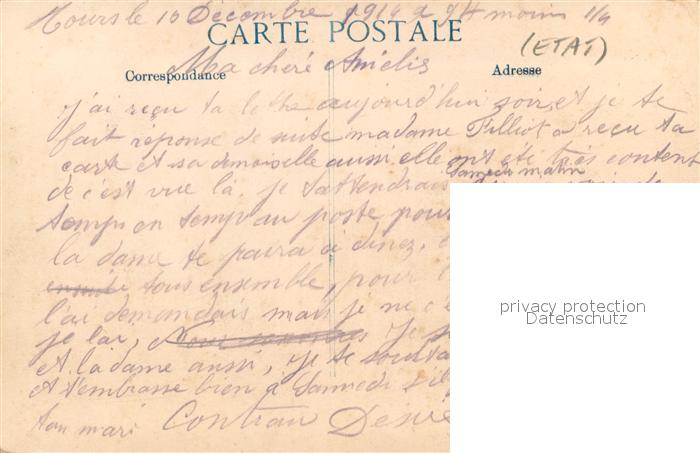 Tours le 10 Décembre 1914 a 9H moins 1/4
CARTE POSTALE
(ETAT)
Ma cheré Amélis
Correspondance
Adresse
J'ai reçu ta lettre aujourd'hui soir, et je te
fait réponse de suite madame Filliot a reçu ta
carte et sa demoiselle aussi elle ont été très content
Samedi matin
de c'est vue là. je t'attendrais
temps en temps au poste pour
la dame te paira a dinez,
tous ensemble, pour
l'ai demandais mais je ne
je lai, je
et la dame aussi, je te
et t'embrasse bien a Samedi s'il
ton mari Contran Désiré
privacy protection
Datenschutz